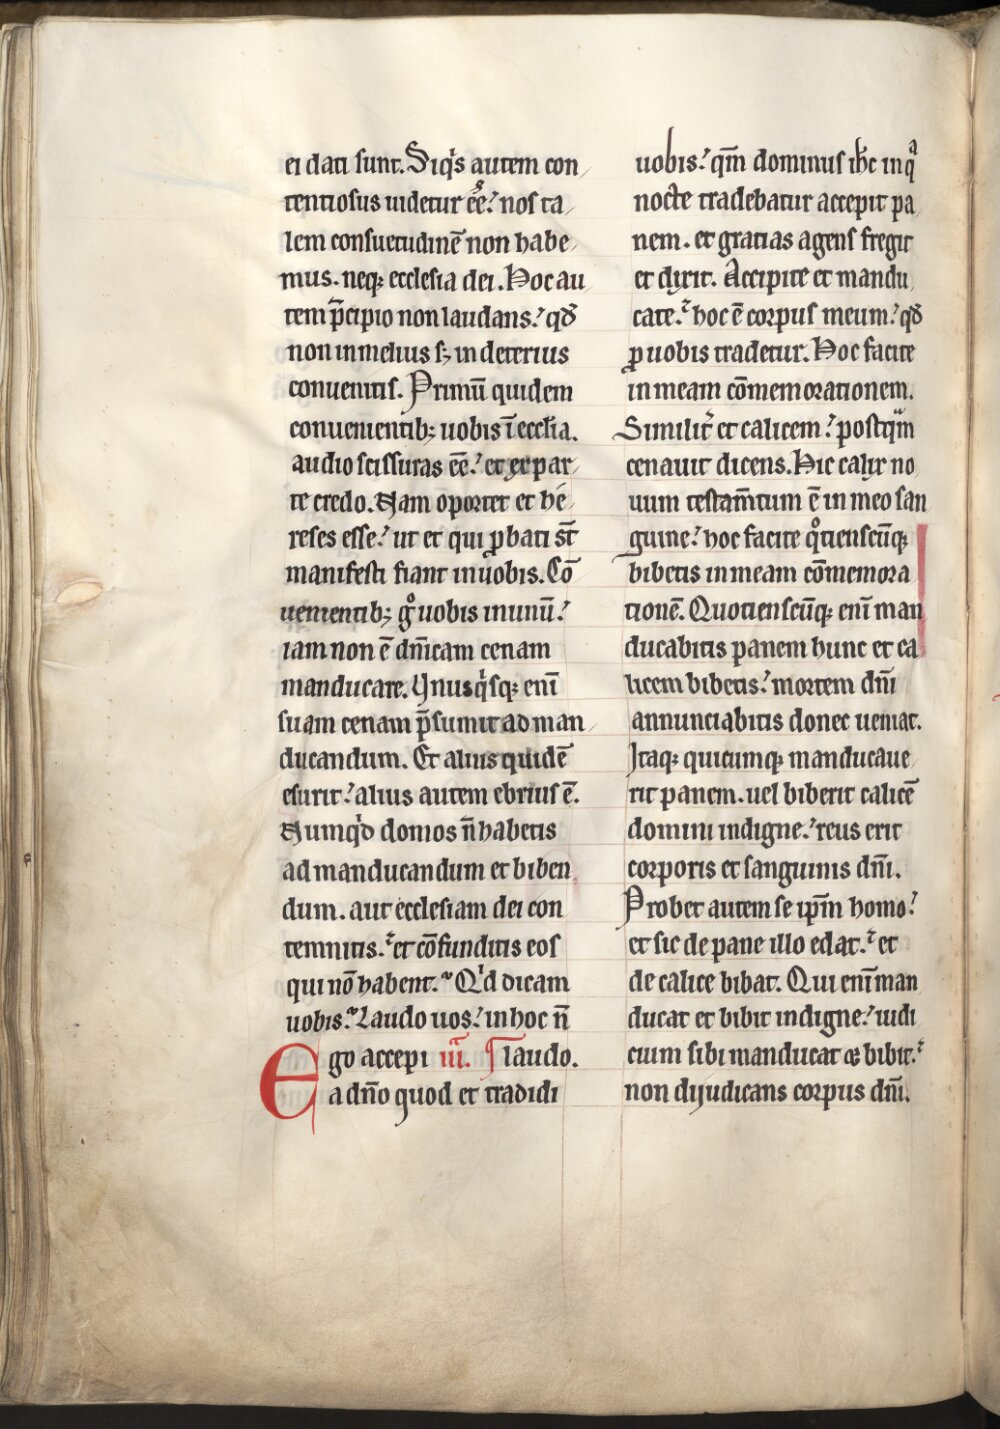 ei dati sunt. Siqͥs autem con
tentiosus uidetur eē: nos ta
lem consuetudinē non habe
mus. neqꝫ ecclesia dei. Hoc au
tem p̄cipio non laudans: qđ
non in melius sꝫ in deterius
conuenitis. Primū quidem
conuenientibꝫ uobis ī eccl̄ia.
audio scissuras eē: et ex par
te credo. Nam oportet et he
reses esse: ut et qui ꝓbati st̄
manifesti fiant in uobis. Cō
uenientibꝫ gͦ uobis in unū:
iam non ē dn̄icam cenam
manducare. Vnusqͥsqꝫ enī
suam cenam p̄sumit ad man
ducandum. Et alius quidē
esurit: alius autem ebrius ē.
Numqͥd domos n̄ habetis
ad manducandum et biben
dum. aut ecclesiam dei con
temnitis: et cōfunditis eos
qui nō habent. Qͥd dicam
uobis. Laudo uos: in hoc n̄
laudo.
Ego accepi iii.
a dn̄o quod et tradidi
uobis: qm̄ dominus ih̄c in qᵃ
nocte tradebatur accepit pa
nem. et gratias agens fregit
et dixit. Accipite et mandu
cate: hoc ē corpus meum: qđ
ꝓ uobis tradetur. Hoc facite
in meam cōmemorationem.
Similit̓ et calicem: postqᵃm
cenauit dicens. Hic calix no
uum testam̄tum ē in meo san
guine: hoc facite qͦtienscūqꝫ
bibetis in meam cōmemora
tionē. Quotienscūqꝫ enī man
ducabitis panem hunc et ca
licem bibetis: mortem dn̄i
annunciabitis donec ueniat.
Itaqꝫ quicumqꝫ manducaue
rit panem. uel biberit calicē
domini indigne: reus erit
corporis et sanguinis dn̄i.
Probet autem se ip̄m homo:
et sic de pane illo edat: et
de calice bibat. Qui enī man
ducat et bibit indigne: iudi
cium sibi manducat et bibit:
non dijudicans corpus dn̄i.